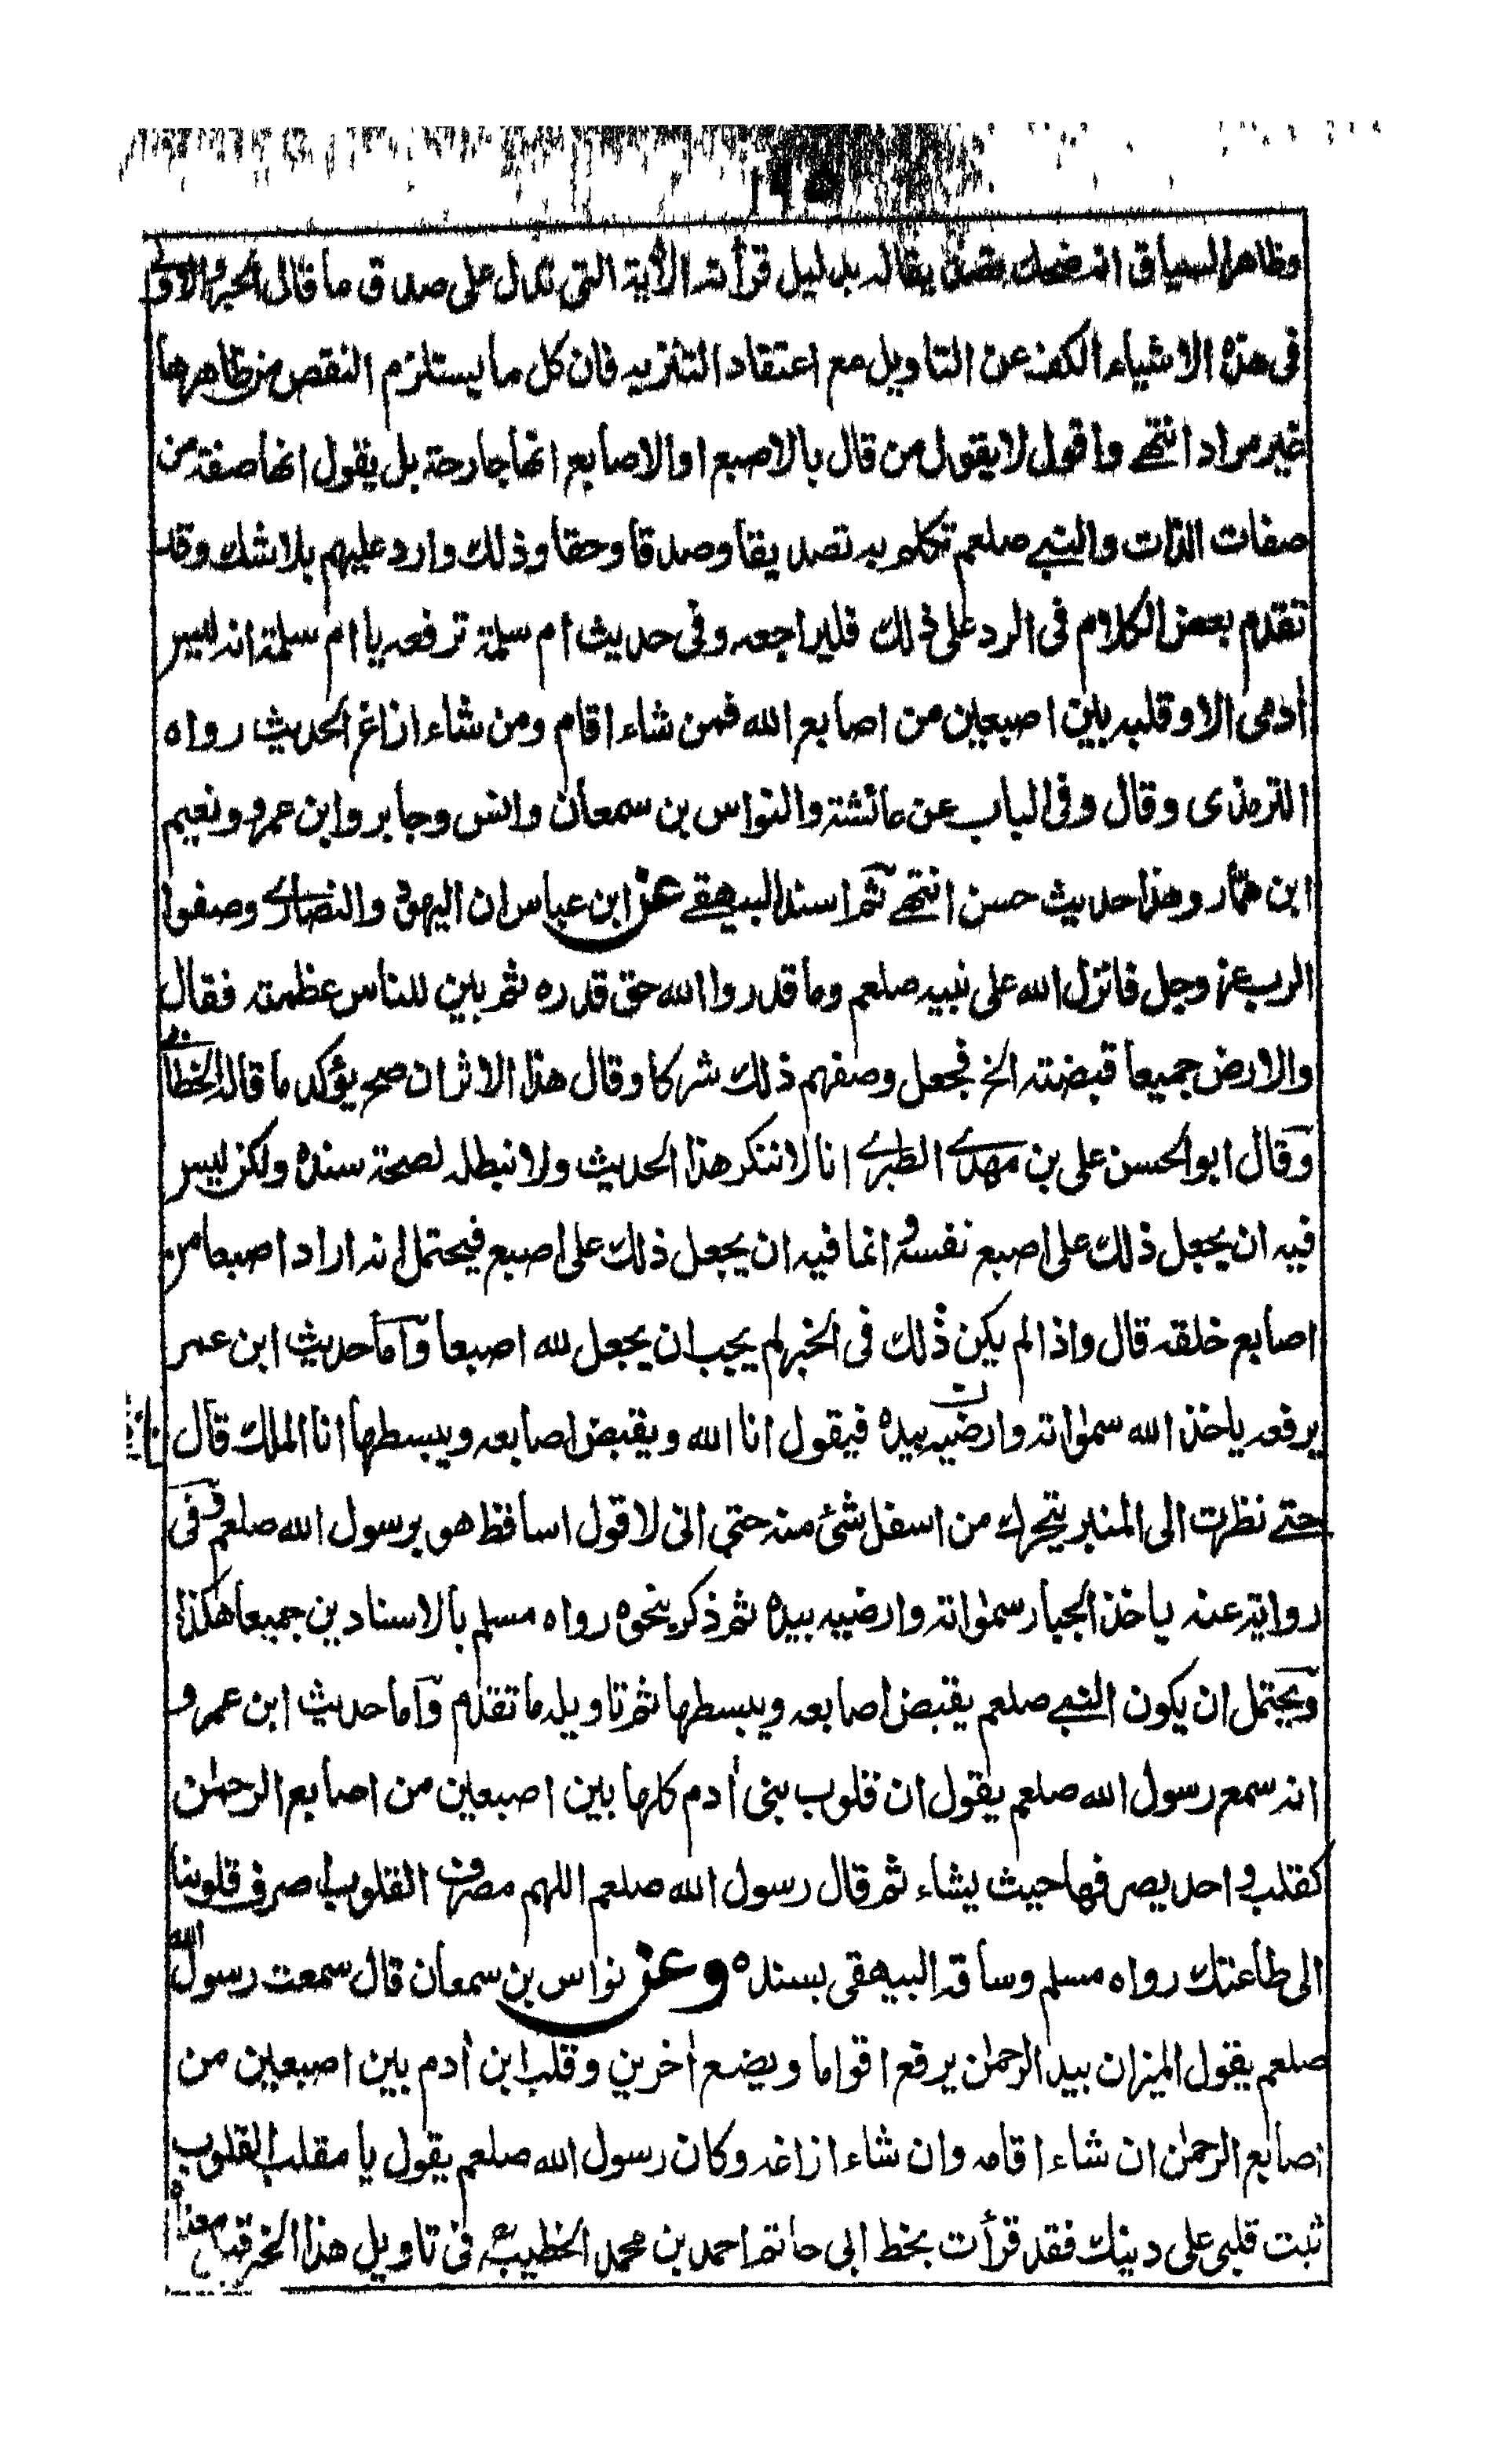 وظاهر السياق انه ضحك تصديقا له بدليل قرأته الأية التي تدل على صدق ما قال الحبر والاولى
في هذه الاشياء الكف عن التاويل مع اعتقاد التنزيه فان كل ما يستلزم النقص من ظاهرها
غير مراد انتهى واقول لا يقول من قال بالاصبع او الاصابع انها جارحة بل يقول انها صفة من
صفات الذات والنبي صلعم تكلم به تصديقا وصدقا وحقا وذلك وارد عليهم بلا شك وقد
تقدم بعض الكلام في الرد على ذلك فليراجعه وفي حديث ام سلمة ترفعه يا ام سلمة انه ليس
أدمي الا وقلبه بين اصبعين من اصابع الله فمن شاء اقام ومن شاء ازاغ الحديث رواه
الترمذي وقال وفي الباب عن عائشة والنواس بن سمعان وانس وجابر وابن عمرو ونعيم
ابن همار وهذا حديث حسن انتهى ثم اسند البيهقي عن ابن عباس ان اليهود والنصارى وصفوا
الرب عز وجل فانزل الله على نبيه صلعم وما قدروا الله حق قدره ثم بين للناس عظمته فقال
والارض جميعا قبضته الخ فجعل وصفهم ذلك شركا وقال هذا الاثر ان صح يؤكد ما قاله الخطابي
وقال ابو الحسن علي بن مهدي الطبري انا لا ننكر هذا الحديث ولا نبطله لصحة سنده ولكن ليس
فيه ان يجعل ذلك على اصبع نفسه وانما فيه ان يجعل ذلك على اصبع فيحتمل انه اراد اصبعا من
اصابع خلقه قال واذا لم يكن ذلك في الخبر لم يجب ان يجعل لله اصبعا وأما حديث ابن عمر
يرفعه ياخذ الله سمواته وارضيه بيده فيقول انا الله ويقبض اصابعه ويبسطها انا الملك قال
حتى نظرت الى المنبر يتحرك من اسفل شئ منه حتي اني لاقول اساقط هو برسول الله صلعم وفي
رواية عنه ياخذ الجبار سمواته وارضيه بيده ثم ذكر بنحوه رواه مسلم بالاسنادين جميعا هكذا
ويحتمل ان يكون النبي صلعم يقبض اصابعه ويبسطها ثم تاويله ما تقدم وأما حديث ابن عمرو
انه سمع رسول الله صلعم يقول ان قلوب بني أدم كلها بين اصبعين من اصابع الرحمن
كقلب واحد يصرفها حيث يشاء ثم قال رسول الله صلعم اللهم مصرف القلوب اصرف قلوبنا
الى طاعتك رواه مسلم وساقه البيهقي بسنده وعن نواس بن سمعان قال سمعت رسول الله
صلعم يقول الميزان بيد الرحمن يرفع اقواما ويضع أخرين وقلب ابن أدم بين اصبعين من
اصابع الرحمن ان شاء اقامه وان شاء ازاغه وكان رسول الله صلعم يقول يا مقلب القلوب
ثبت قلبي على دينك فقد قرأت بخط ابي حاتم احمد بن محمد الخطيب في تاويل هذا الخبر قيل معناه